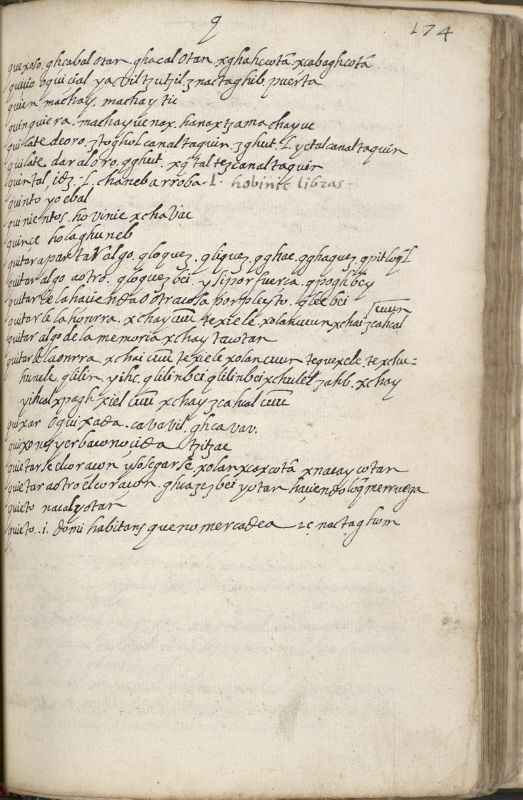 q
174
quexoso. ghcabal otan. ghacal otan xghahcotã xcabaghcotã
quicio o quicial ya vil tzutzil znactaghib puerta
quien machay. machay tic
quinquiera. machayucnax. hanaxtzamachayuc
quilate de oro. ztoghol canal taquin zghut. l yctal canal taquin
quilate, dar al oro. gghut. xqtaltez canal taquin
quintal, idz. l. chaneb arroba. l. hobinic libras.
quinto yoebal
quinientos. ho vinic xchavac
quinçe holaghuneb
quitar a partar algo. qloquez. qliquez. qghac. gghaquez. qpitloq l
quitar algo a otro. qloquez bei. y si por fuerca. qpoghbey
quitarle la hazienda o otra cosa por pleyto. qlecbei
quitarle la honrra. xchay cuun texiele xolancuun xchai zcahal cuun
quitar algo de la memoria xchay tacotan
quitarle la onrra. xchai cuun texiele xolancuun tequexele. texchu=
hunele. qlilin. yihc. qlilinbei. qlilinbei xchulel zahb. xchay
yihcal xpagh xiel cuun xchay zcahal cuun
quixar o quixada. cavavil. ghcavav.
quixones yerba conoçida tzitzac
quietarse el coraçon y sosegarse. xolanxcoxcotã xnacay cotan
quietar a otro el coraçon. ghuzezbei yotan haziendo lo q merruega
quieto nacal yotan
quieto. i. domi habitans que no mercadea 2c. nactaghom